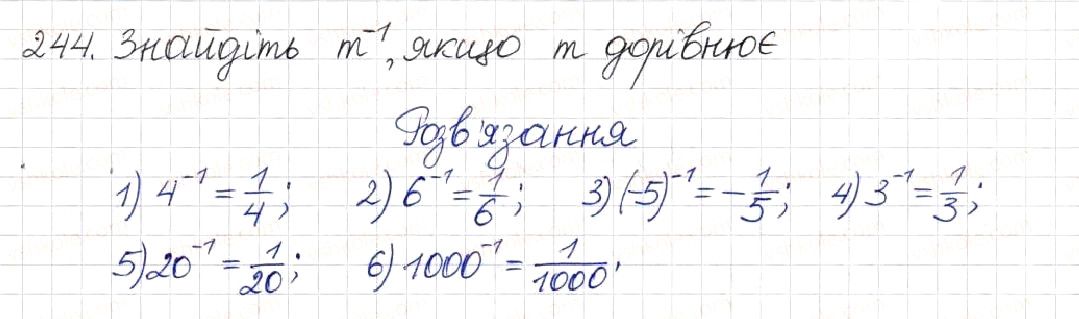 244. Знайдіть m⁻¹, якщо m дорівнює
Розв'язання
1) 4⁻¹ = 1/4; 2) 6⁻¹ = 1/6; 3) (-5)⁻¹ = -1/5; 4) 3⁻¹ = 1/3;
5) 20⁻¹ = 1/20; 6) 1000⁻¹ = 1/1000.